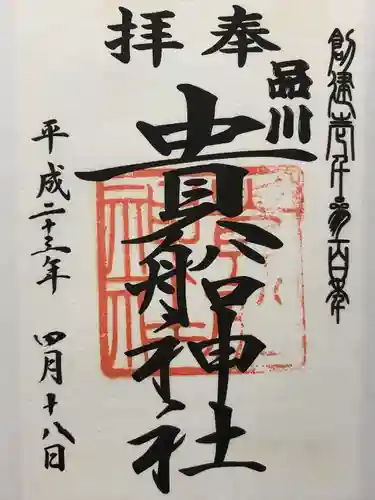 奉拝
創建壱千参百年
品川
貴船神社
平成二十三年 四月十八日